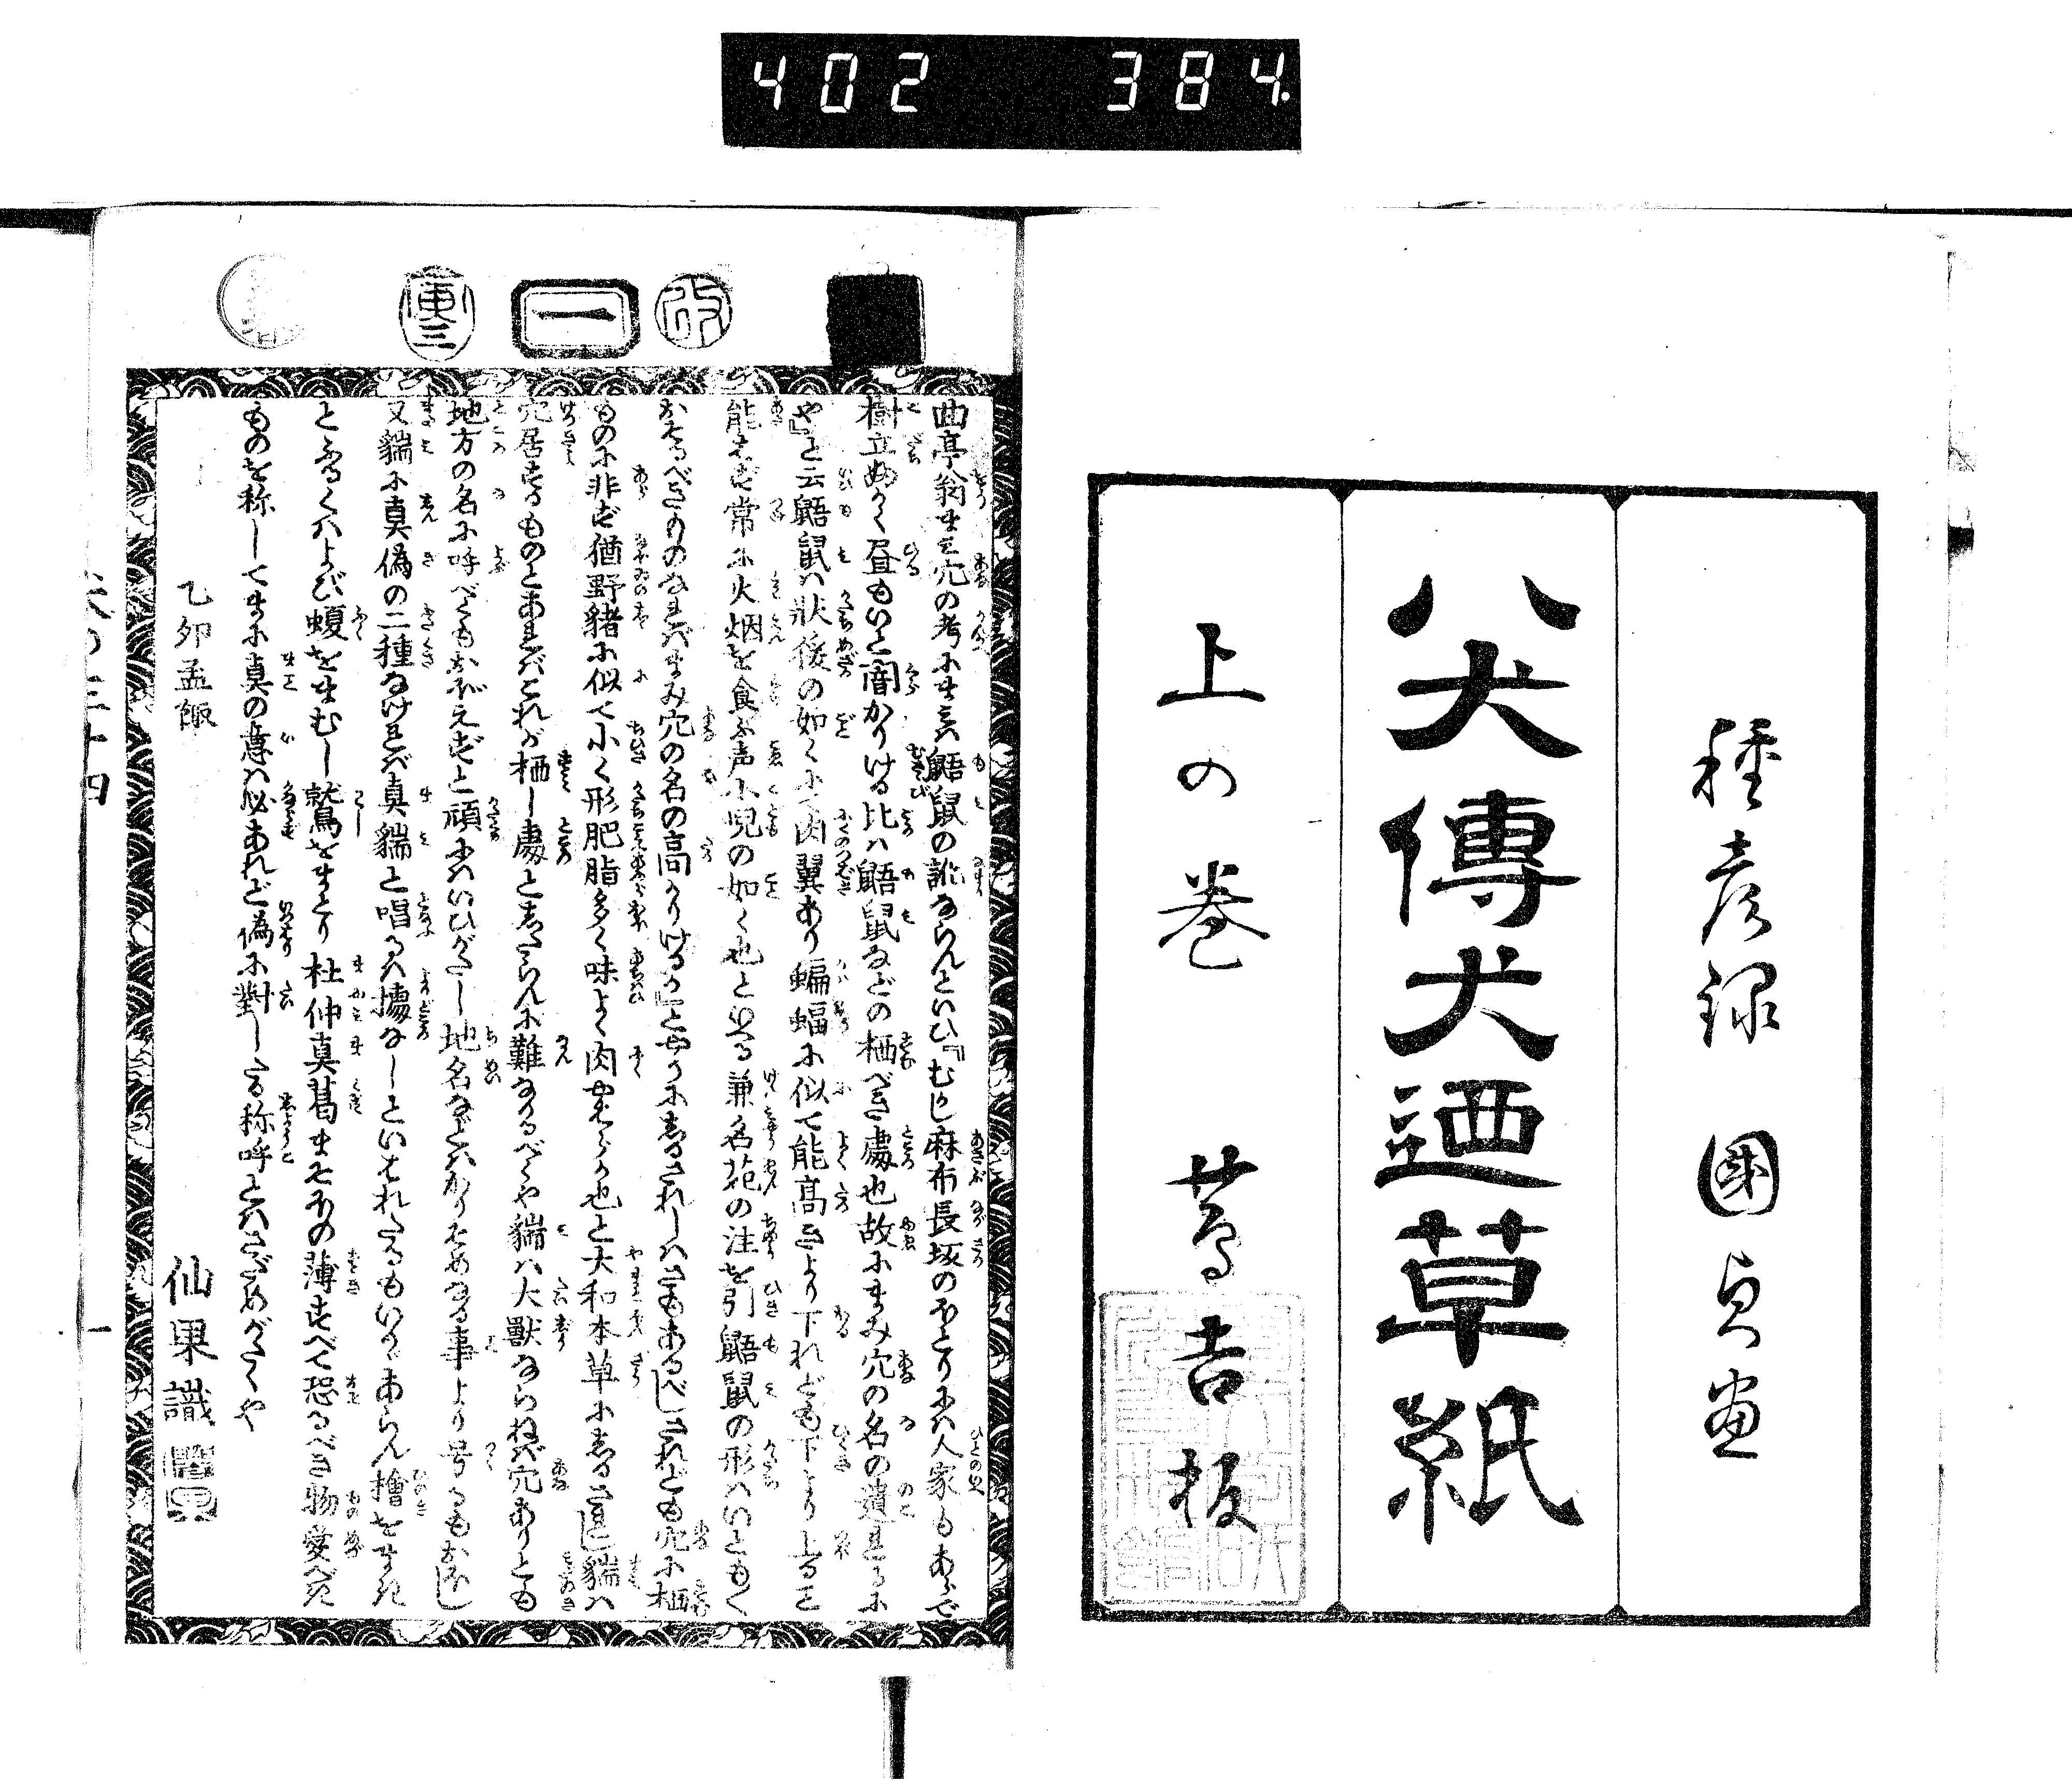 402 384.
種彦録 國貞画
八犬傳犬廼草紙
上の巻 蔦吉板
改
一
寅三
曲亭翁まミ穴の考にまミハ鼯鼠の訛ならんといひ『むかし麻布長坂のほとりにハ人家もあらで
樹立ふかく昼もいと闇かりける比ハ鼯鼠などの栖べき處也故にまみ穴の名の遺れるに
や』と云鼯鼠ハ状後の如くにて肉翼あり蝙蝠に似て能高きより下れども下より上る事
能はず常に火烟を食ふ声小児の如く也と見る兼名苑の注を引鼯鼠の形ハいともく
おそるべきものなれバまみ穴の名の高かりけるか』とやうにしるされしハさもあるべしされども穴に栖
ものに非ず猶野猪に似て小く形肥脂多く味よく肉やはらか也と大和本草にしるされし貒ハ
穴居するものとあれバこれが栖し處としたらんに難なかるべくや貒ハ大獣ならねバ穴ありとも
地方の名に呼べくもおぼえずと頑にハいひがたし地名などハかりそめなる事より号るもおほし
又貒に真偽の二種なけれバ真貒と唱るハ據なしといはれたるもいかゞあらん檜をまき
とふるくハよび蝮をまむし鷲をまとり杜仲真葛ますほの薄すべて恐るべき物愛べき
ものを称してまに真の意ハ必あれど偽に對したる称呼とハさだめがたくや
乙卯孟陬
仙果識
犬の三十四
一